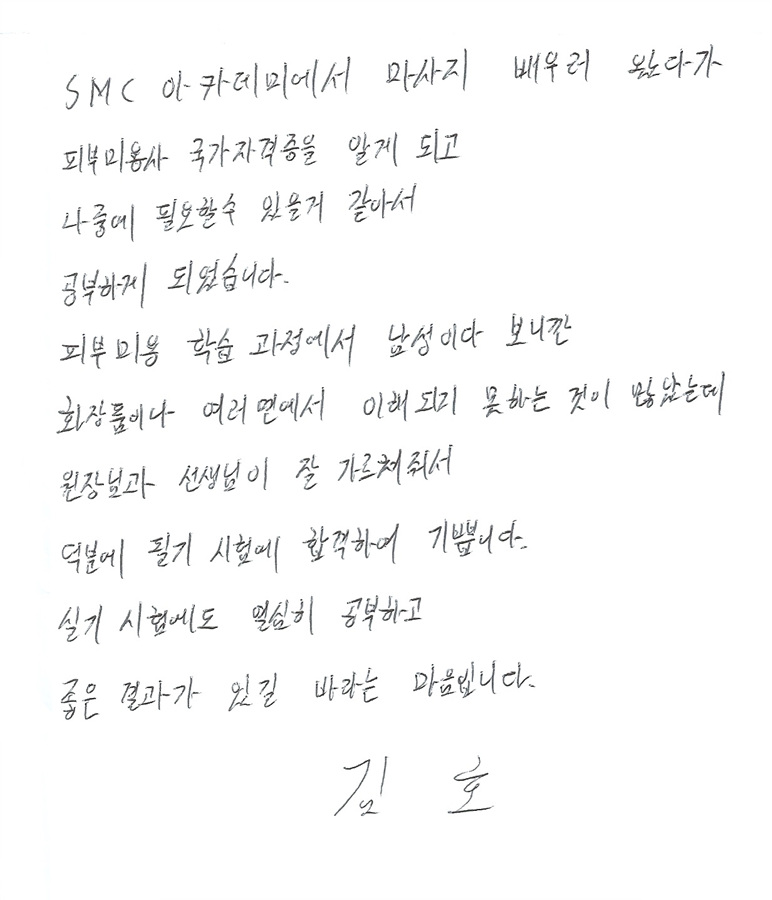 SMC 아카데미에서 마사지 배우러 왔다가
피부미용사 국가자격증을 알게 되고
나중에 필요할수 있을거 같아서
공부하게 되었습니다.
피부미용 학습 과정에서 남성이다 보니깐
화장품이나 여러면에서 이해되지 못하는 것이 많았는데
원장님과 선생님이 잘 가르쳐줘서
덕분에 필기 시험에 합격하여 기쁩니다.
실기 시험에도 열심히 공부하고
좋은 결과가 있길 바라는 마음입니다.
김 호